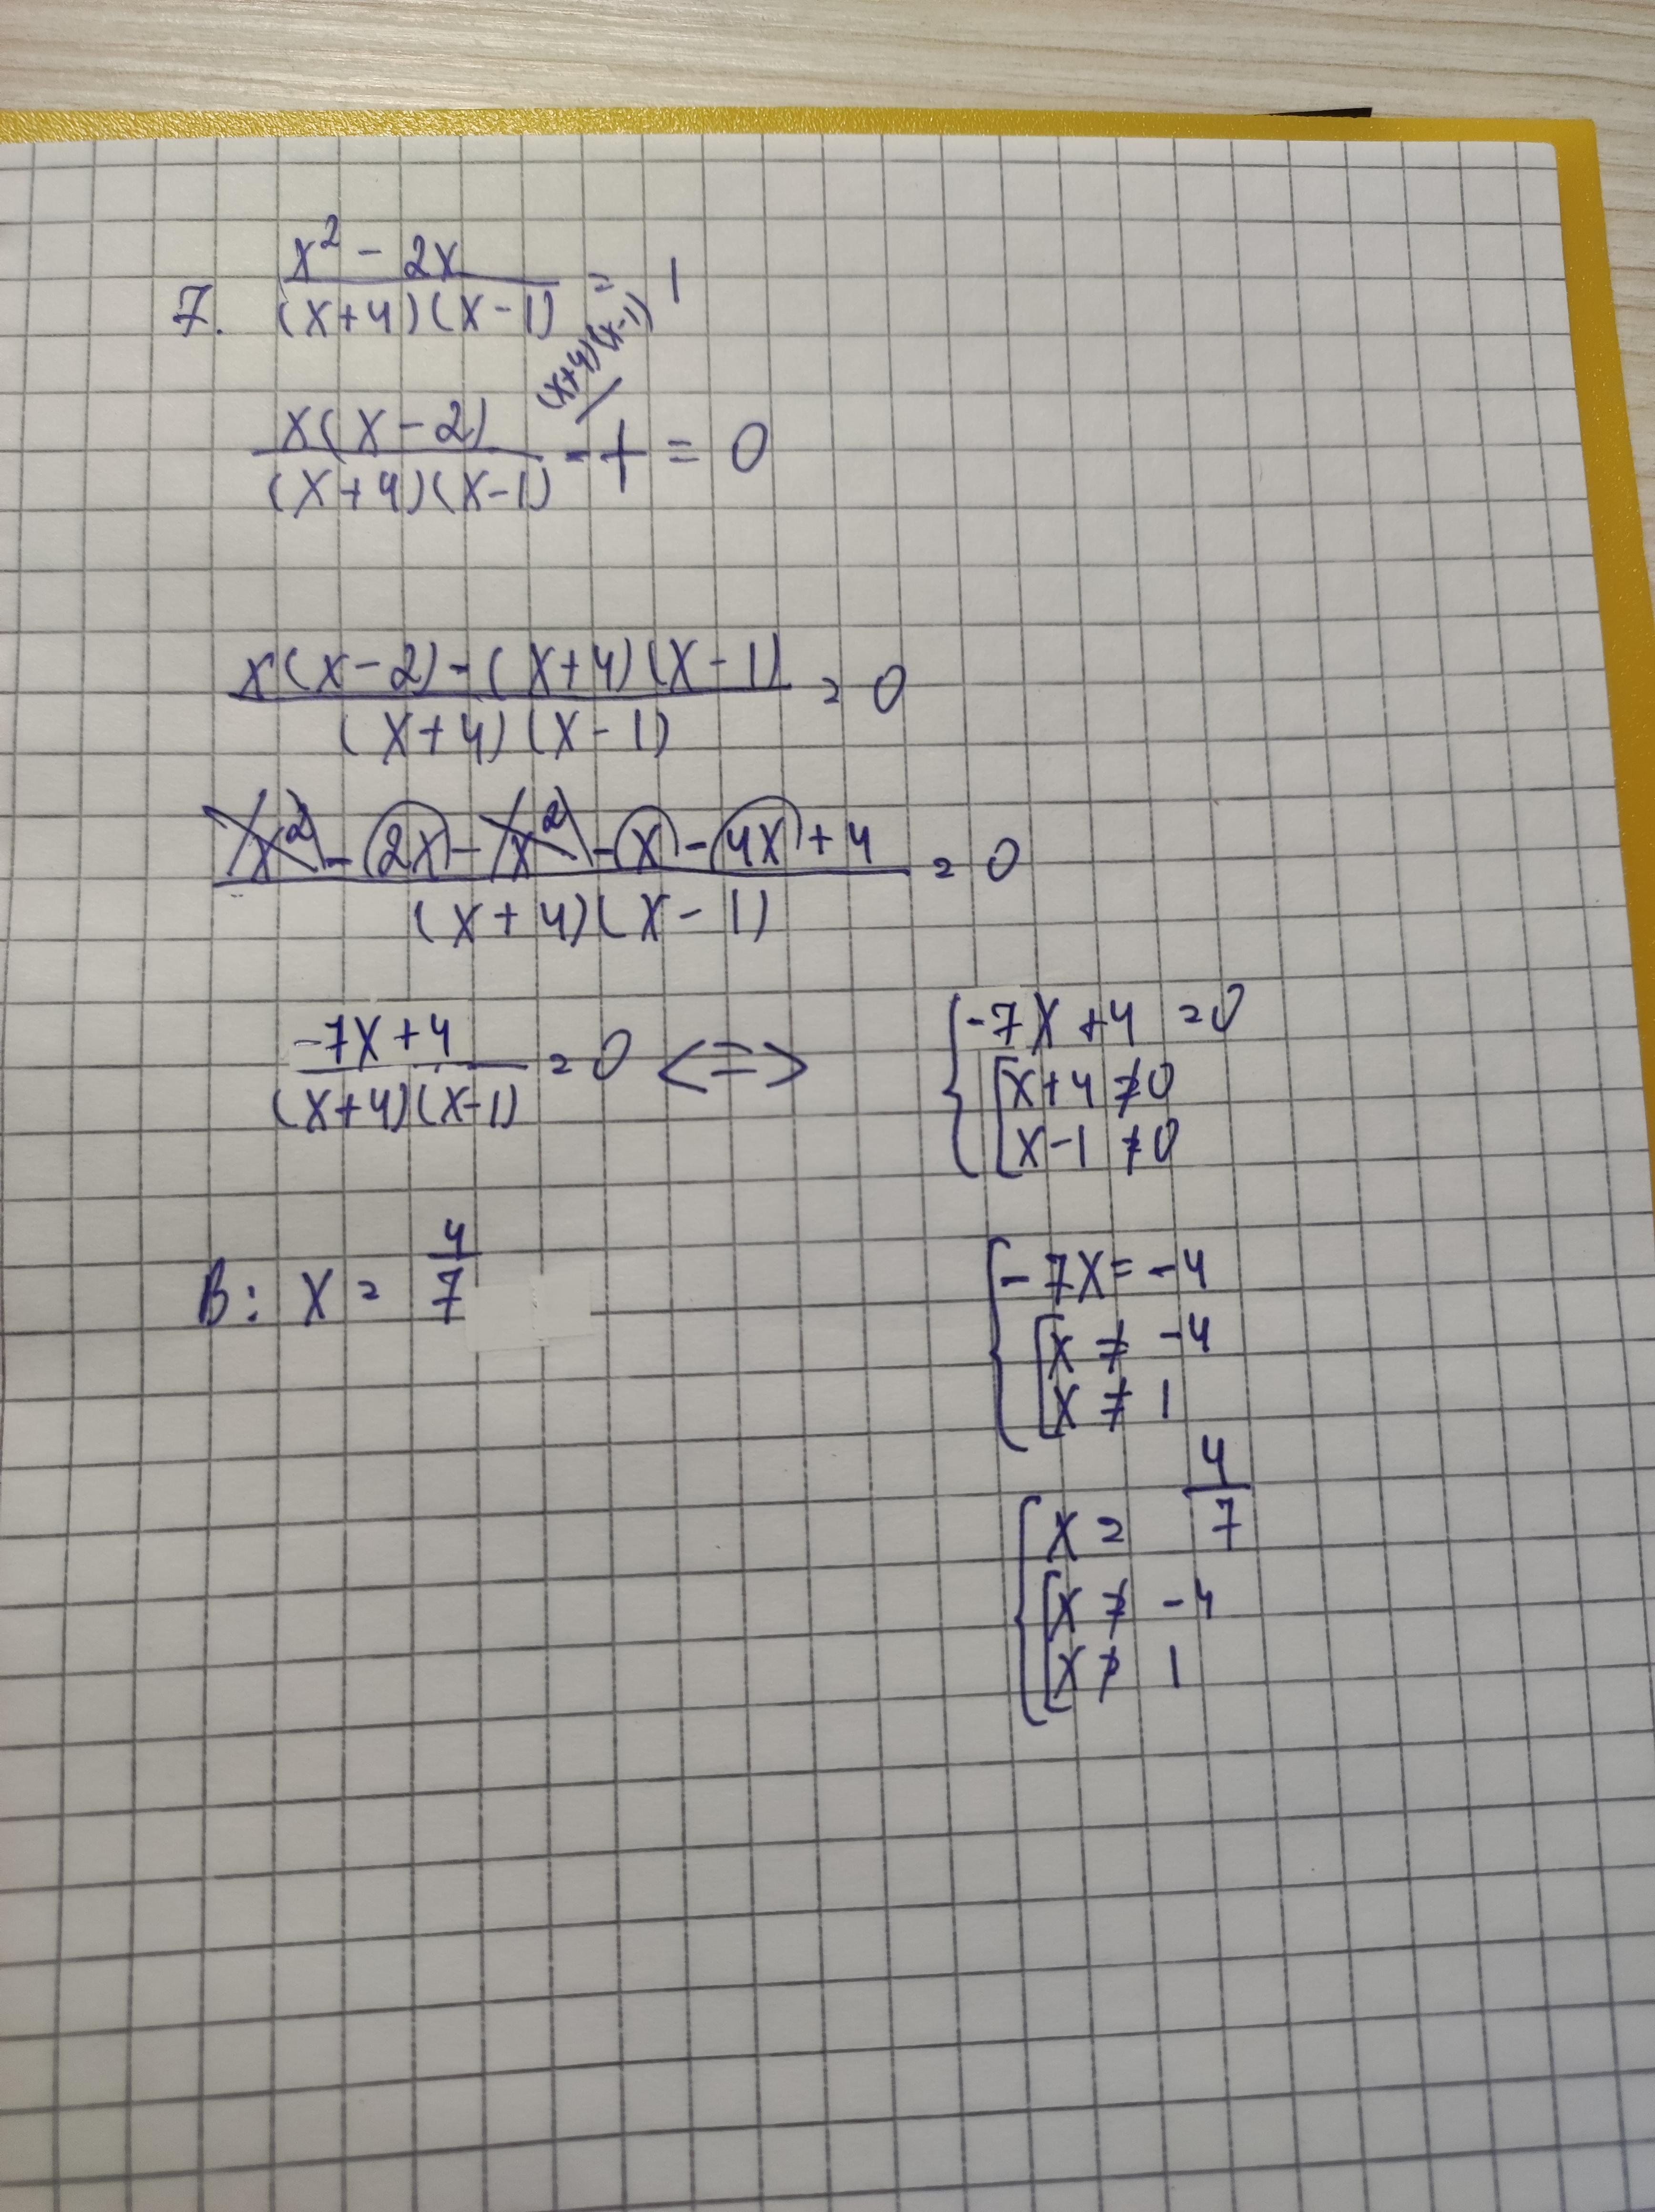 7. \frac{x^2 - 2x}{(x+4)(x-1)} = 1
\frac{x(x-2)}{(x+4)(x-1)} - 1^{/(x+4)(x-1)} = 0
\frac{x(x-2)-(x+4)(x-1)}{(x+4)(x-1)} = 0
\frac{x^2 - 2x - x^2 - x - 4x + 4}{(x+4)(x-1)} = 0
\frac{-7x+4}{(x+4)(x-1)} = 0 <=> { -7x+4 = 0
[ x+4 ≠ 0
x-1 ≠ 0
{ -7x = -4
[ x ≠ -4
x ≠ 1
В: x = \frac{4}{7}
{ x = \frac{4}{7}
[ x ≠ -4
x ≠ 1